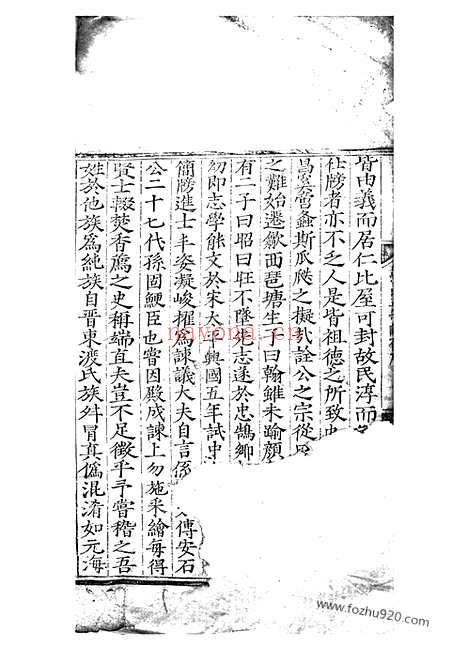 皆由義而居仁比屋可封故民淳而
仕牓者亦不乏人是皆祖德之所致
螽斯瓜瓞之擬訛詮公之宗從
之難始遷歙西琵琶塘生子曰翰雖未踰顏
有二子曰昭曰旺不墜先志遂於忠鵠鄉
幼即志學能文於宋太平興國五年試中
簡牓進士丰姿凝峻擢為諫議大夫自言係 傳安石
公二十七代孫固鯁臣也嘗因殿成諫上勿施采繪每得
賢士輟焚香薦之史稱端直夫豈不足徵乎予嘗稽之吾
姓於他族為純族自晋東渡氏族舛冒真偽混淆如元海
nayona.cn
www.fozhu920.com